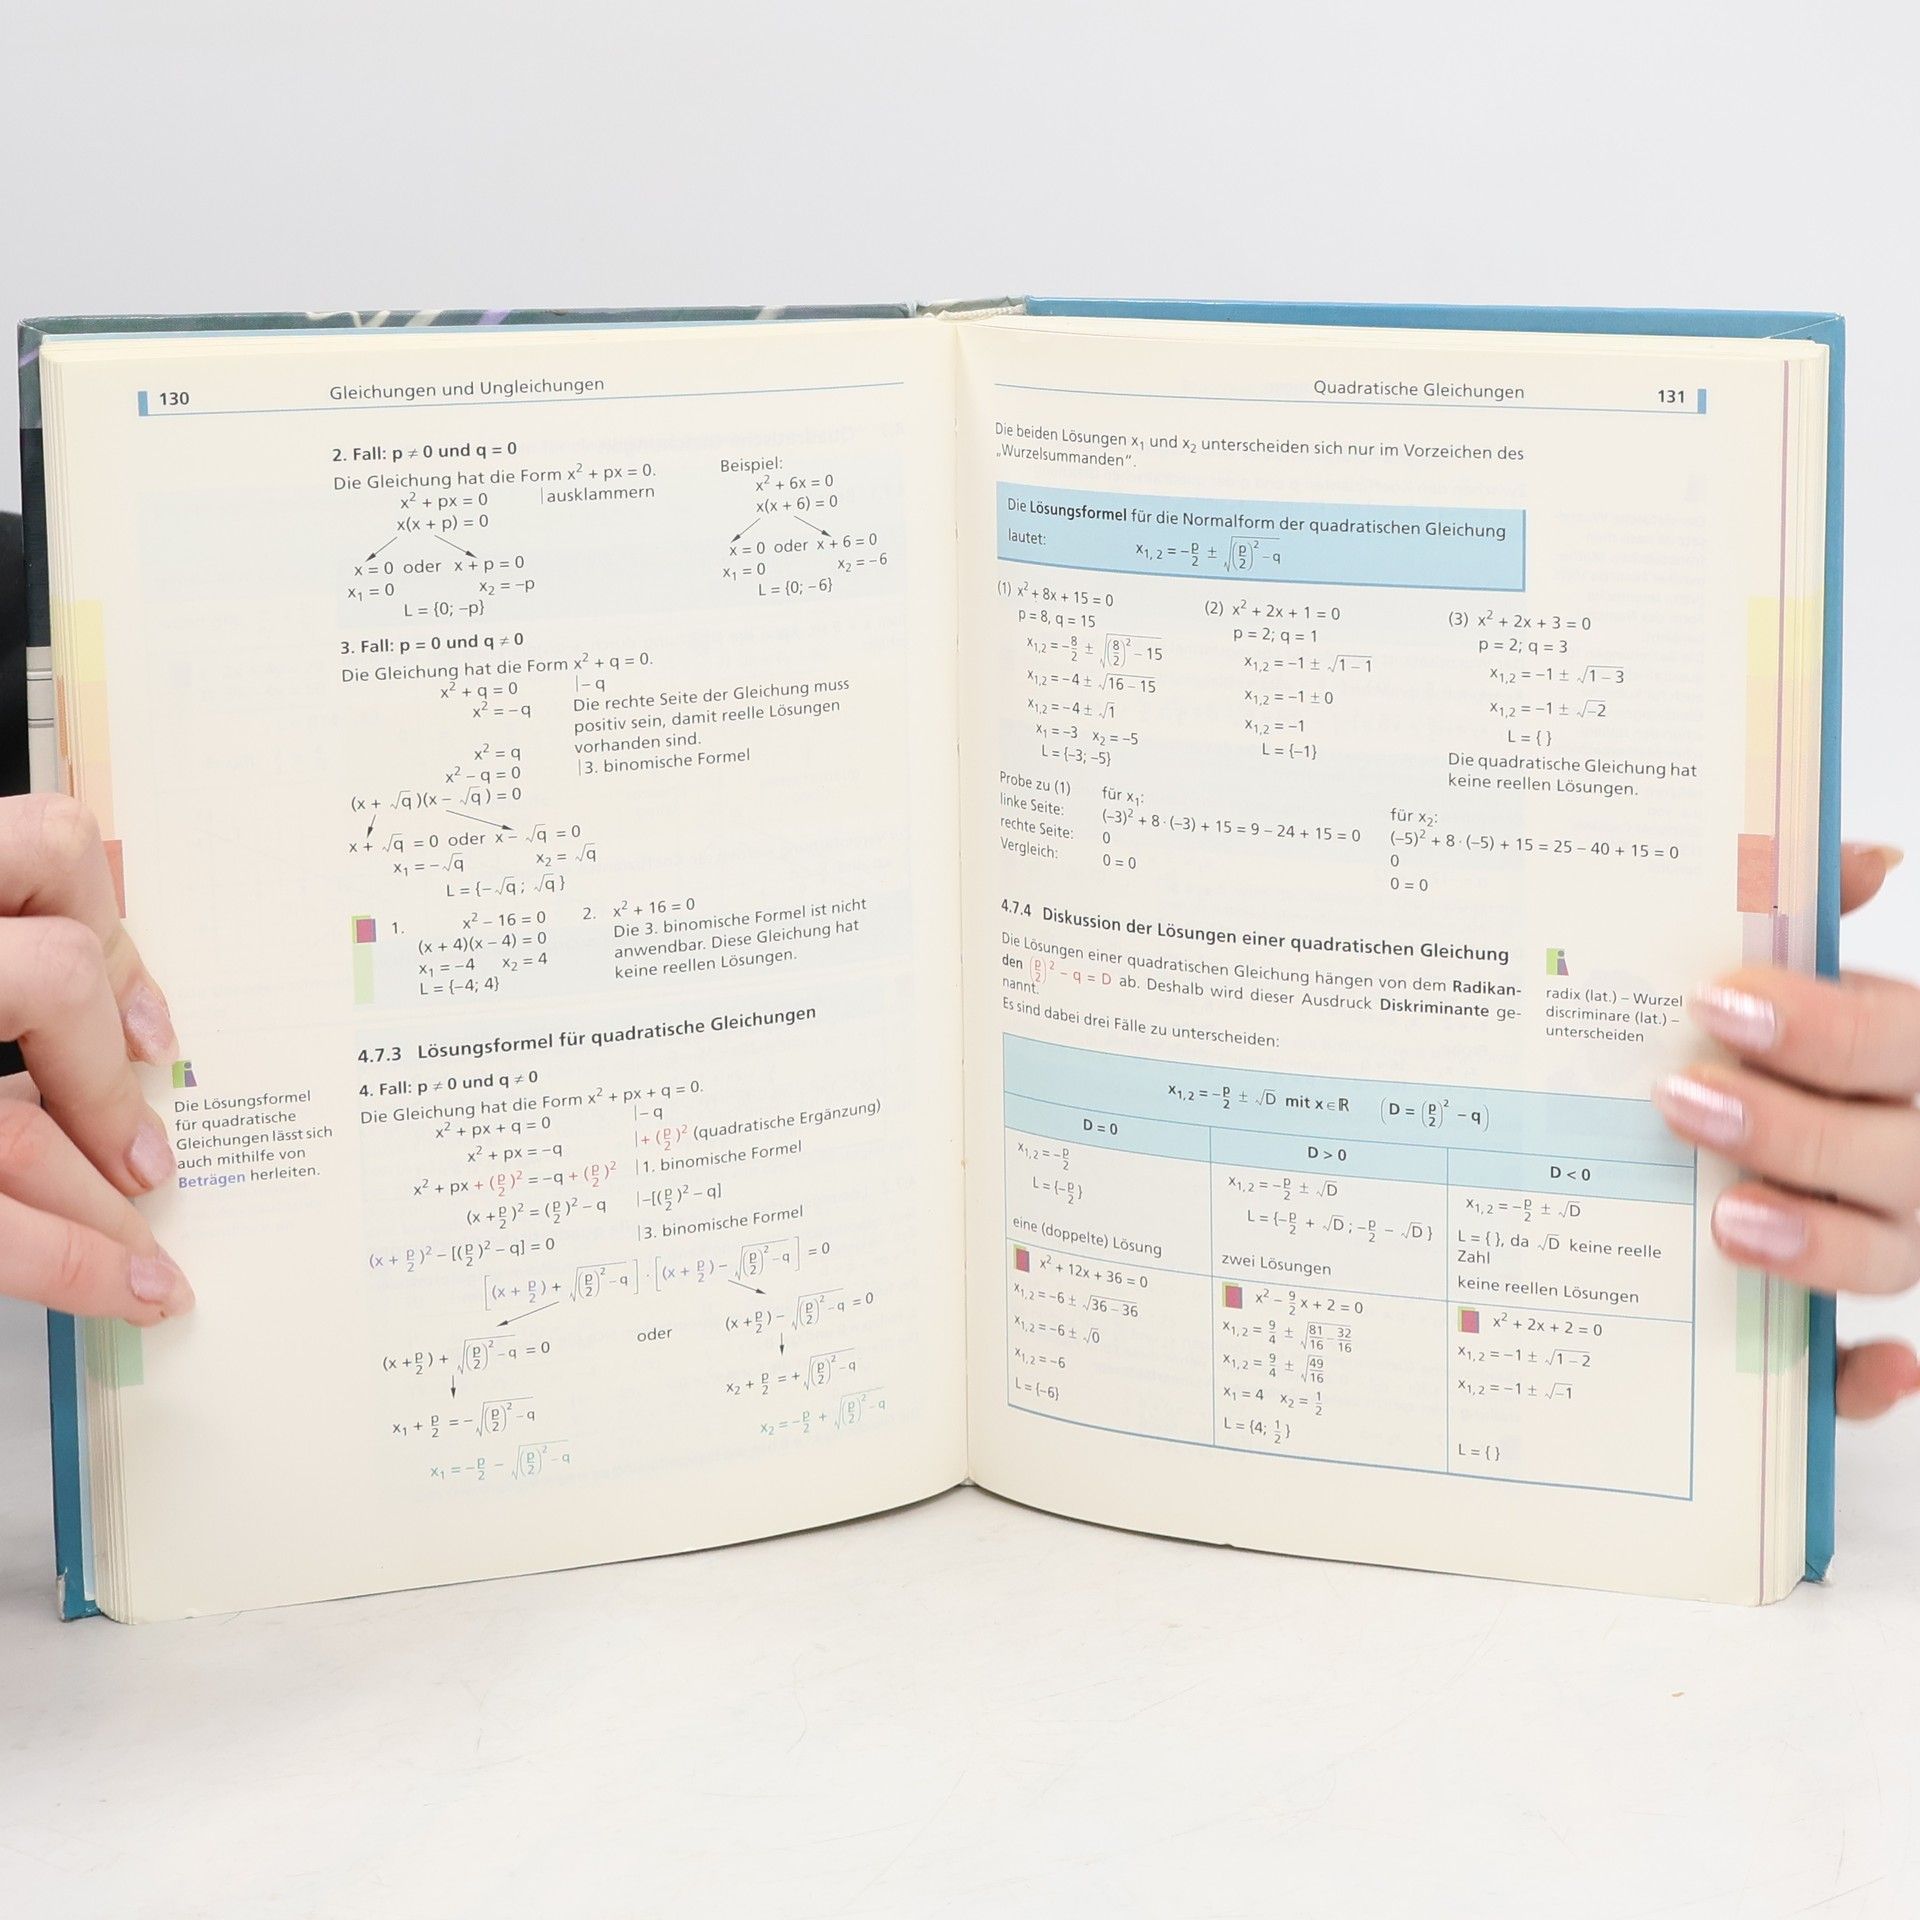 130 Gleichungen und Ungleichungen
2. Fall: p ≠ 0 und q = 0
Die Gleichung hat die Form x² + px = 0.
x² + px = 0 |ausklammern
x(x + p) = 0
x = 0 oder x + p = 0
x₁ = 0 x₂ = –p
L = {0; –p}
Beispiel:
x² + 6x = 0
x(x + 6) = 0
x = 0 oder x + 6 = 0
x₁ = 0 x₂ = –6
L = {0; –6}
3. Fall: p = 0 und q ≠ 0
Die Gleichung hat die Form x² + q = 0.
x² + q = 0 |– q
x² = –q Die rechte Seite der Gleichung muss
positiv sein, damit reelle Lösungen
vorhanden sind.
x² = q
x² – q = 0 |3. binomische Formel
(x + √q)(x – √q) = 0
x + √q = 0 oder x – √q = 0
x₁ = –√q x₂ = √q
L = {–√q; √q}
1. x² – 16 = 0
(x + 4)(x – 4) = 0
x₁ = –4 x₂ = 4
L = {–4; 4}
2. x² + 16 = 0
Die 3. binomische Formel ist nicht
anwendbar. Diese Gleichung hat
keine reellen Lösungen.
4.7.3 Lösungsformel für quadratische Gleichungen
Die Lösungsformel
für quadratische
Gleichungen lässt sich
auch mithilfe von
Beträgen herleiten.
4. Fall: p ≠ 0 und q ≠ 0
Die Gleichung hat die Form x² + px + q = 0.
x² + px + q = 0 |– q
x² + px = –q |+ (p/2)² (quadratische Ergänzung)
x² + px + (p/2)² = –q + (p/2)² |1. binomische Formel
(x + p/2)² = (p/2)² – q |–[(p/2)² – q]
(x + p/2)² – [(p/2)² – q] = 0 |3. binomische Formel
[(x + p/2) + √((p/2)² – q)] · [(x + p/2) – √((p/2)² – q)] = 0
(x + p/2) + √((p/2)² – q) = 0 oder (x + p/2) – √((p/2)² – q) = 0
x₁ + p/2 = –√((p/2)² – q) x₂ + p/2 = +√((p/2)² – q)
x₁ = –p/2 – √((p/2)² – q) x₂ = –p/2 + √((p/2)² – q)
Quadratische Gleichungen 131
Die beiden Lösungen x₁ und x₂ unterscheiden sich nur im Vorzeichen des
„Wurzelsummanden“.
Die Lösungsformel für die Normalform der quadratischen Gleichung
lautet: x₁,₂ = –p/2 ± √((p/2)² – q)
(1) x² + 8x + 15 = 0
p = 8, q = 15
x₁,₂ = –8/2 ± √((8/2)² – 15)
x₁,₂ = –4 ± √(16 – 15)
x₁,₂ = –4 ± √1
x₁ = –3 x₂ = –5
L = {–3; –5}
(2) x² + 2x + 1 = 0
p = 2; q = 1
x₁,₂ = –1 ± √(1 – 1)
x₁,₂ = –1 ± 0
x₁,₂ = –1
L = {–1}
(3) x² + 2x + 3 = 0
p = 2; q = 3
x₁,₂ = –1 ± √(1 – 3)
x₁,₂ = –1 ± √–2
L = { }
Die quadratische Gleichung hat
keine reellen Lösungen.
Probe zu (1) für x₁: für x₂:
linke Seite: (–3)² + 8 · (–3) + 15 = 9 – 24 + 15 = 0 (–5)² + 8 · (–5) + 15 = 25 – 40 + 15 = 0
rechte Seite: 0 0
Vergleich: 0 = 0 0 = 0
4.7.4 Diskussion der Lösungen einer quadratischen Gleichung
Die Lösungen einer quadratischen Gleichung hängen von dem Radikan-
den (p/2)² – q = D ab. Deshalb wird dieser Ausdruck Diskriminante ge-
nannt.
Es sind dabei drei Fälle zu unterscheiden:
radix (lat.) – Wurzel
discriminare (lat.) –
unterscheiden
x₁,₂ = –p/2 ± √D mit x ∈ ℝ (D = (p/2)² – q)
D = 0 D > 0 D < 0
x₁,₂ = –p/2
L = {–p/2}
eine (doppelte) Lösung
x₁,₂ = –p/2 ± √D
L = {–p/2 + √D; –p/2 – √D}
zwei Lösungen
x₁,₂ = –p/2 ± √D
L = { }, da √D keine reelle
Zahl
keine reellen Lösungen
x² + 12x + 36 = 0
x₁,₂ = –6 ± √(36 – 36)
x₁,₂ = –6 ± √0
x₁,₂ = –6
L = {–6}
x² – 9/2 x + 2 = 0
x₁,₂ = 9/4 ± √(81/16 – 32/16)
x₁,₂ = 9/4 ± √(49/16)
x₁ = 4 x₂ = 1/2
L = {4; 1/2}
x² + 2x + 2 = 0
x₁,₂ = –1 ± √(1 – 2)
x₁,₂ = –1 ± √–1
L = { }